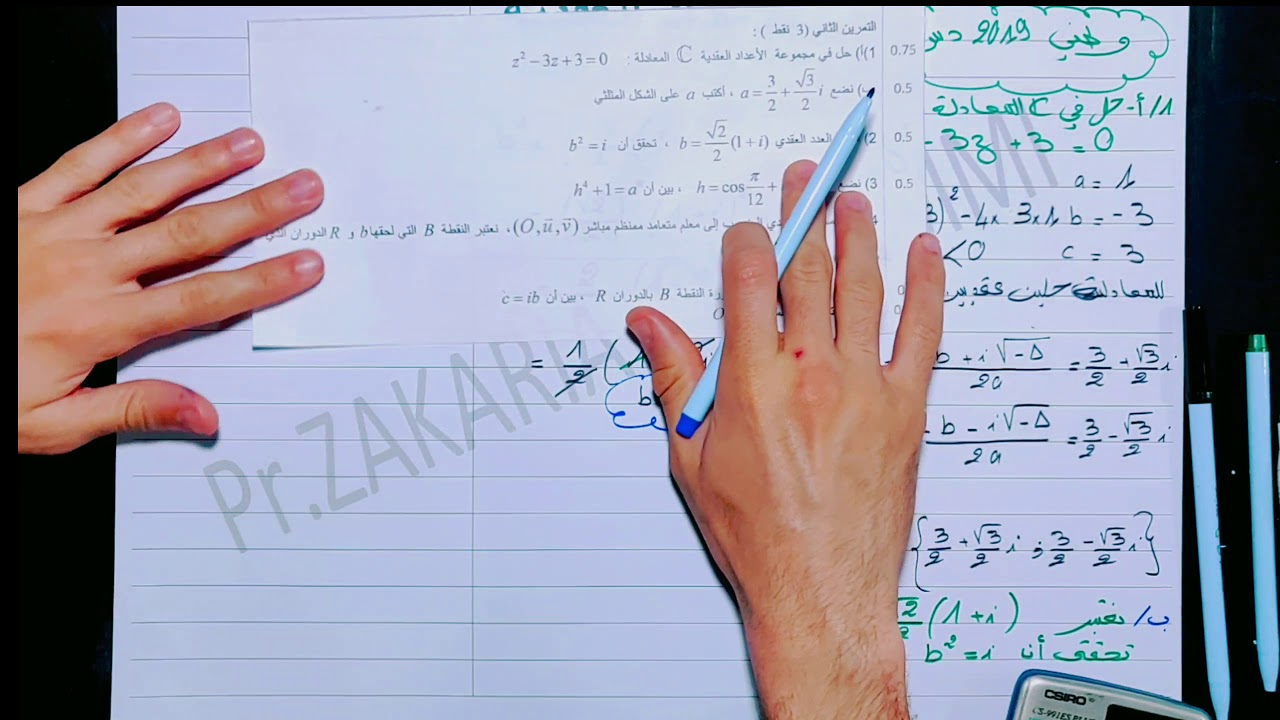 التمرين الثاني (3 نقط ) :
0.75 1)أ) حل في مجموعة الأعداد العقدية ℂ المعادلة : z² − 3z + 3 = 0
0.5 ب) نضع a = 3/2 + √3/2 i ، أكتب a على الشكل المثلثي
0.5 2) العدد العقدي b = √2/2 (1+i) ، تحقق أن b² = i
0.5 3) نضع h = cos π/12 + ، بين أن h⁴ + 1 = a
إلى معلم متعامد ممنظم مباشر (O, u, v) ، نعتبر النقطة B التي لحقها b و R الدوران
النقطة B بالدوران R ، بين أن c = ib
وطني 2019
1/أ- حل في ℂ المعادلة
- 3z + 3 = 0
a = 1
3)² - 4 x 3 x 1 b = -3
<0 c = 3
للمعادلة حلين عقديين
b + i√-Δ / 2a = 3/2 + √3/2 i
- b - i√-Δ / 2a = 3/2 - √3/2 i
{3/2 + √3/2 i ; 3/2 - √3/2 i}
ب/ نعتبر √2/2 (1+i)
تحقق أن b² = i
= 1/2 (1
b
Pr.ZAKARIA
CSIRO